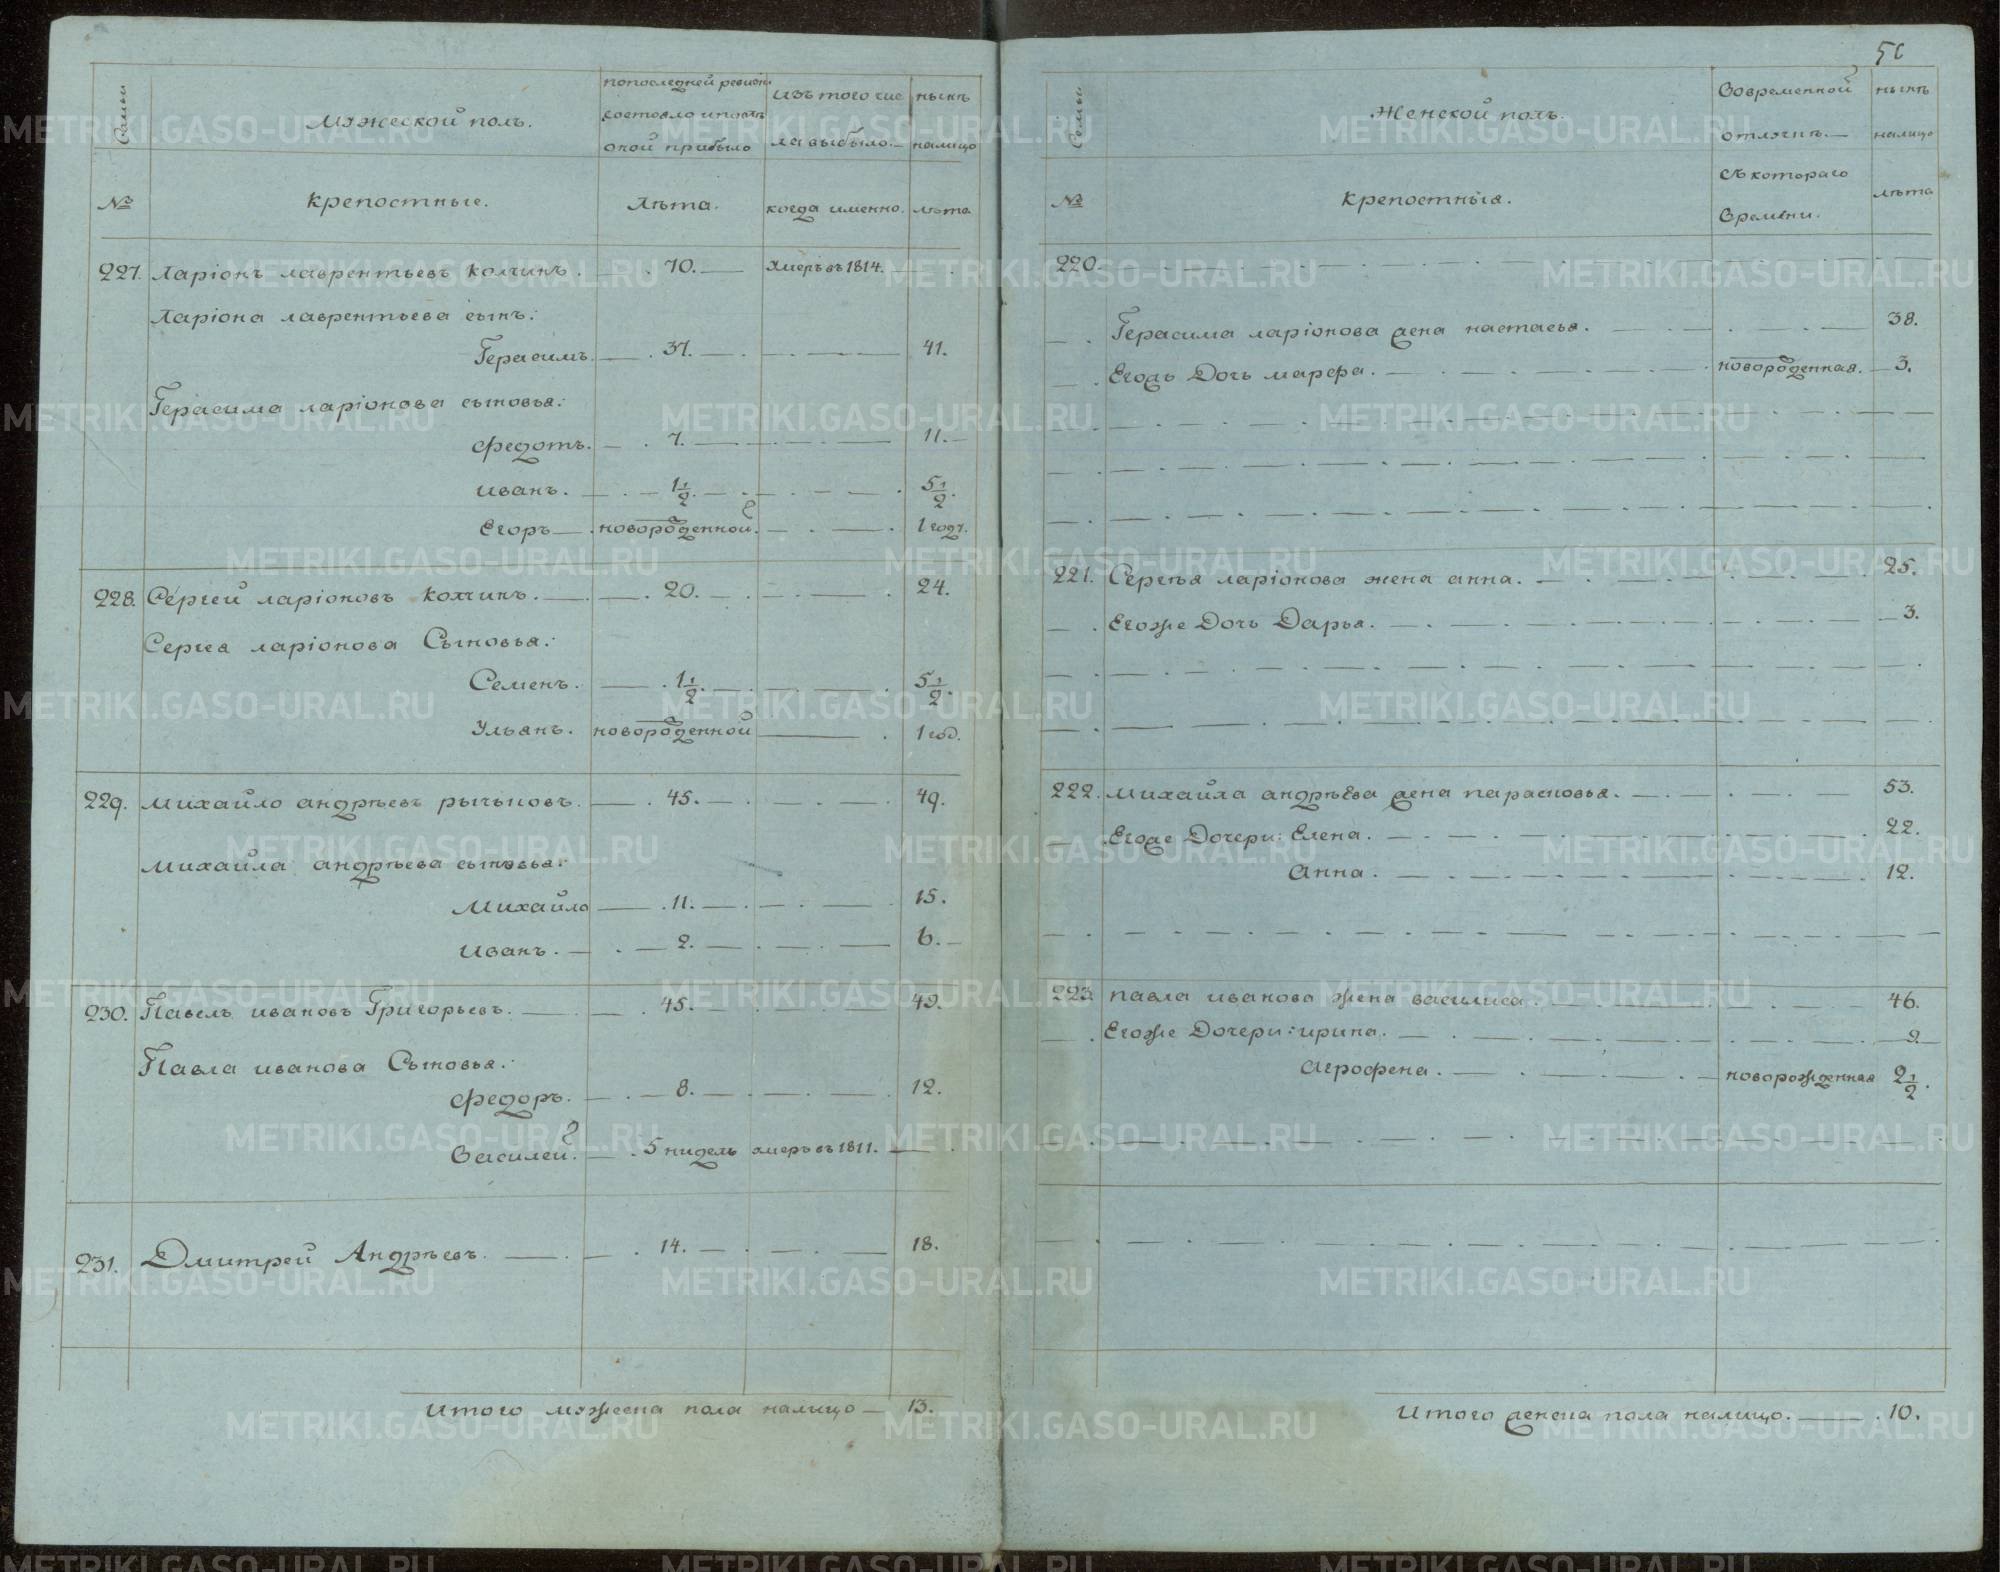 Семьи
Мужеской полъ.
попоследней ревизи
состояло ипосль
оной прибыло
изътого чис
лавыбыло.
нынѣ
налицо
№
крепостные.
Лѣта.
когда именно.
лѣта
227. Ларіонъ лаврентьевъ колчинъ. 70. умеръвъ1814.
Ларіона лаврентьева сынъ:
Герасимъ 37. 41.
Герасима ларіонова сыновья:
Федотъ. 7. 11.
иванъ. 1 1/2. 5 1/2.
Егоръ новорожденной. 1 годъ.
228. Сергей ларіоновъ колчинъ. 20. 24.
Сергея ларіонова Сыновья:
Семенъ. 1 1/2. 5 1/2.
Ульянъ. новорожденной 1 год.
229. михайло андрѣевъ рычьковъ. 45. 49.
михайла андрѣева сыновья:
Михайло 11. 15.
иванъ. 2. 6.
230. Павелъ ивановъ Григорьевъ. 45. 49.
Павла иванова Сыновья:
Федоръ. 8. 12.
Василей. 5 нидель умеръвъ1811.
231. Дмитрей Андрѣевъ. 14. 18.
Итого мужеска пола налицо 13.
Семьи
Женской полъ.
Вовременной
отлучкѣ.
нынѣ
налицо
№
крепостныя.
съ котораго
Времени.
лѣта
220.
Герасима ларіонова жена настасья. 38.
Егожъ Дочь марфа. новорожденная. 3.
221. Сергѣя ларіонова жена анна. 25.
Егоже Дочь Дарья. 3.
222. михайла андрѣева жена парасковья. 53.
Егоже Дочери: Елена. 22.
Анна. 12.
223. павла иванова жена василиса. 46.
Егоже Дочери: ирина. 9.
Агрофена. новорожденная 2 1/2.
Итого женска пола налицо. 10.
METRIKI.GASO-URAL.RU